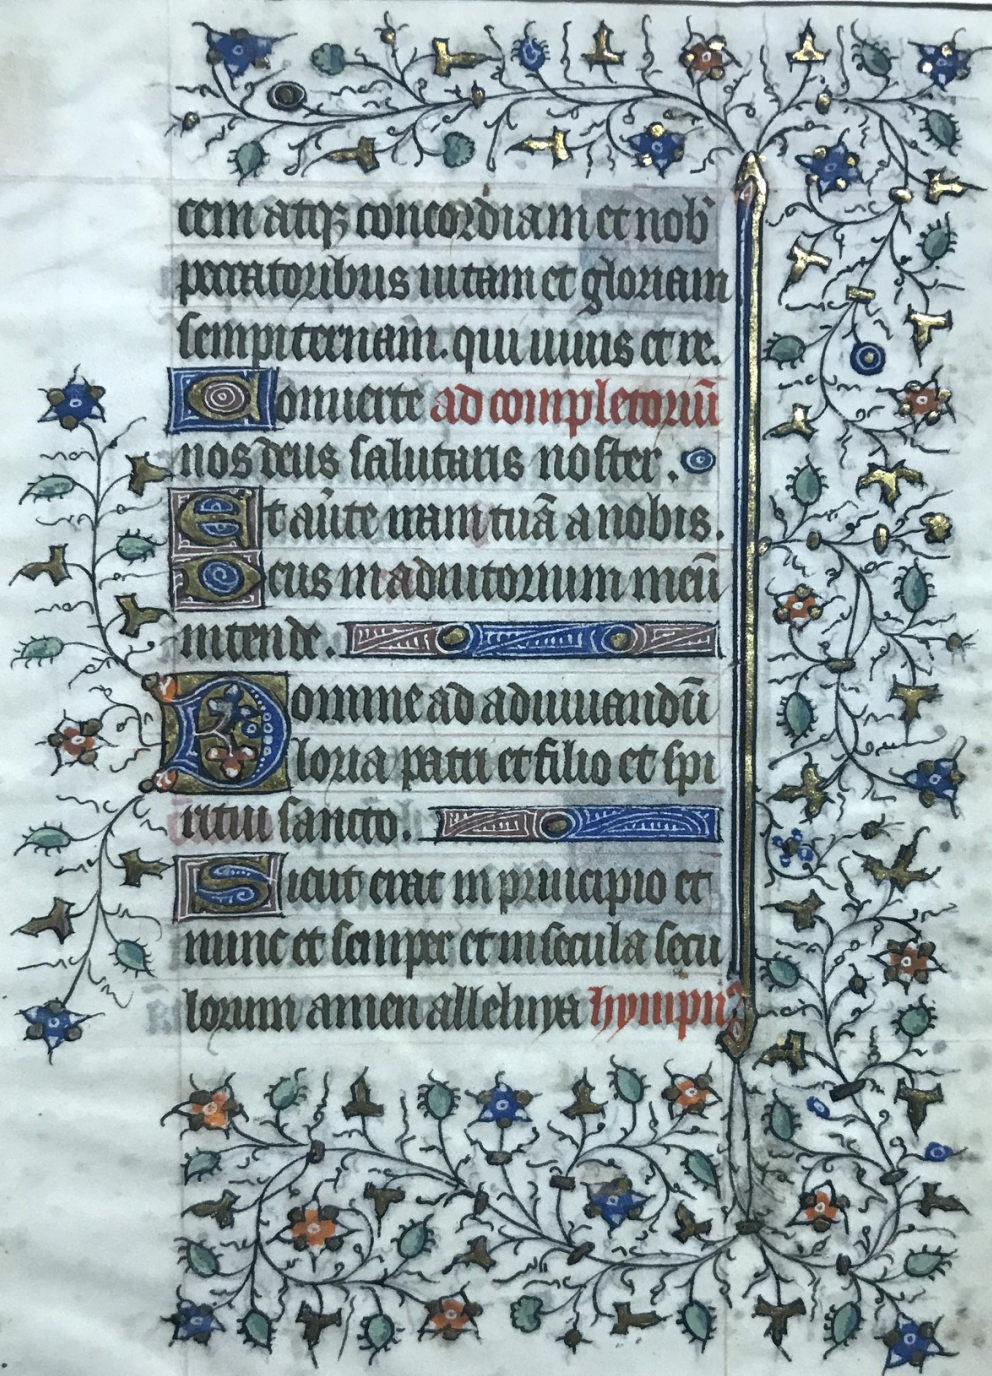 cem atqꝫ concordiam et nob᷒
peccatoribus uitam et gloriam
sempiternam. qui uiuis et re.
Conuerte ad completoriū
nos deus salutaris noster.
Et auīte iram tuā a nobis.
Deus in adiutorium meū
intende.
Domine ad adiuuandū
Gloria patri et filio et spi
ritui sancto.
Sicut erat in principio et
nunc et semper et in secula secu
lorum amen alleluya hympn᷒